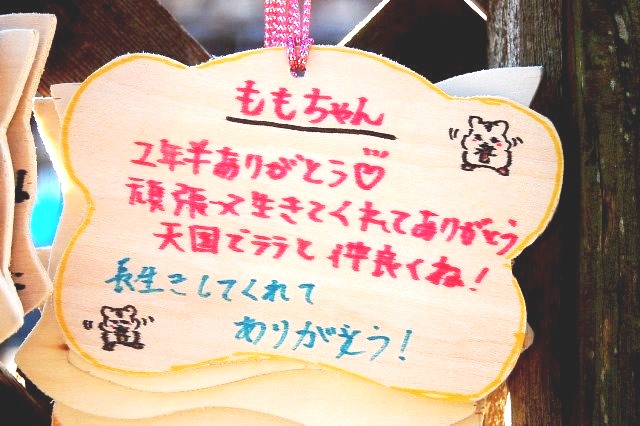 ももちゃん
2年半ありがとう♡
頑張って生きてくれてありがとう
天国でララと仲良くね!
長生きしてくれて
ありがとう!